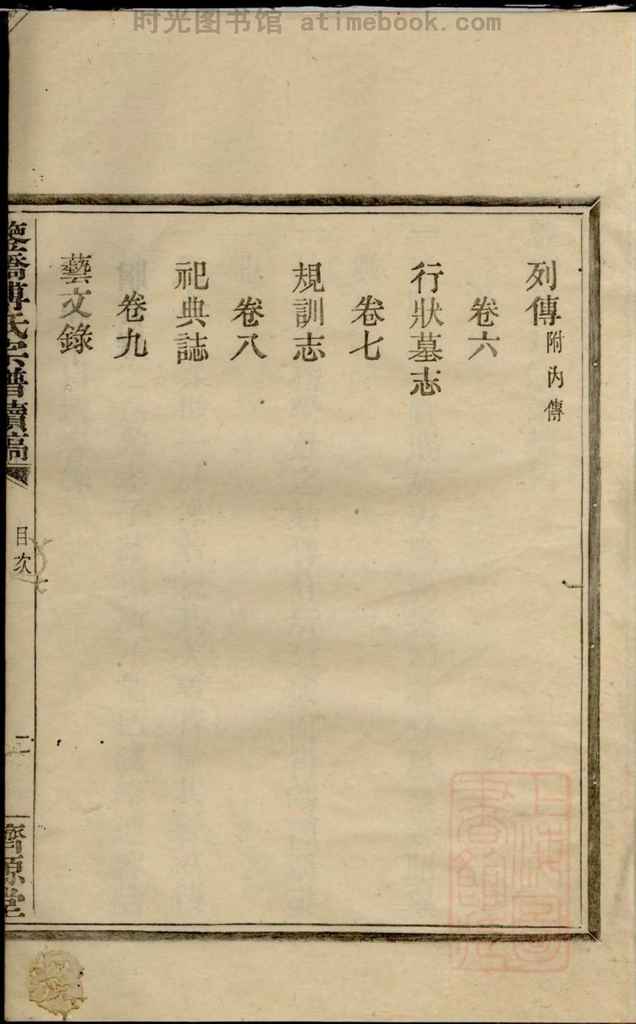 时光图书馆 atimebook.com
列傳附內傳
卷六
行狀墓志
卷七
規訓志
卷八
祀典誌
卷九
藝文錄
傅氏宗譜續稿
目次
二